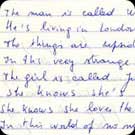 The man is called
He's living in London
The things are
In this very strange
The girl is called
she knows she's
She knows she loves the
In this world of no